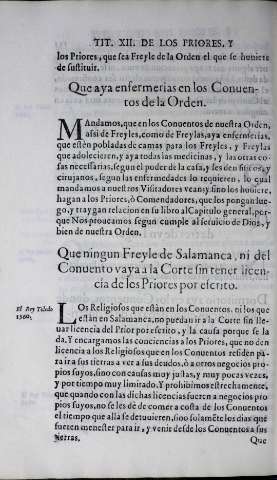 TIT. XII. DE LOS PRIORES, Y
los Priores, que sea Freyle de la Orden el que se huuiere
de sustituir.
Que aya enfermerias en los Conuen-
tos de la Orden.
MAndamos, que en los Conuentos de nuestra Orden,
assi de Freyles, como de Freylas, aya enfermerias,
que estèn pobladas de camas para los Freyles, y Freylas
que adolecieren, y aya todas las medicinas, y las otras co-
sas necessarias, segun el poder de la casa, y les den fisicos, y
cirujanos, segun las enfermedades lo requieren, lo qual
mandamos a nuestros Visitadores vean: y sino los huuiere,
hagan a los Priores, ò Comendadores, que los pongan lue-
go, y traygan relacion en su libro al Capitulo general, por-
que Nos proueamos segun cumple al seruicio de Dios, y
bien de nuestra Orden.
Que ningun Freyle de Salamanca, ni del
Conuento vaya a la Corte sin tener licen-
cia de los Priores por escrito.
El Rey Toledo
1560.
LOs Religiosos que están en los Conuentos, ni los que
están en Salamanca, no puedan ir a la Corte sin lle-
uar licencia del Prior por escrito, y la causa porque se la
da. Y encargamos las conciencias a los Priores, que no den
licencia a los Religiosos que en los Conuentos residen pa-
ra ir a sus tierras a ver a sus deudos, ò a otros negocios pro-
pios suyos, sino con causas muy justas, y muy pocas vezes,
y por tiempo muy limitado. Y prohibimos estrechamente,
que quando con las dichas licencias fueren a negocios pro-
pios suyos, no se les dè de comer a costa de los Conuentos
el tiempo que allà se detuuieren, sino solamẽte los dias que
fueren menester para ir, y venir desde los Conuentos a sus
tierras.
Que